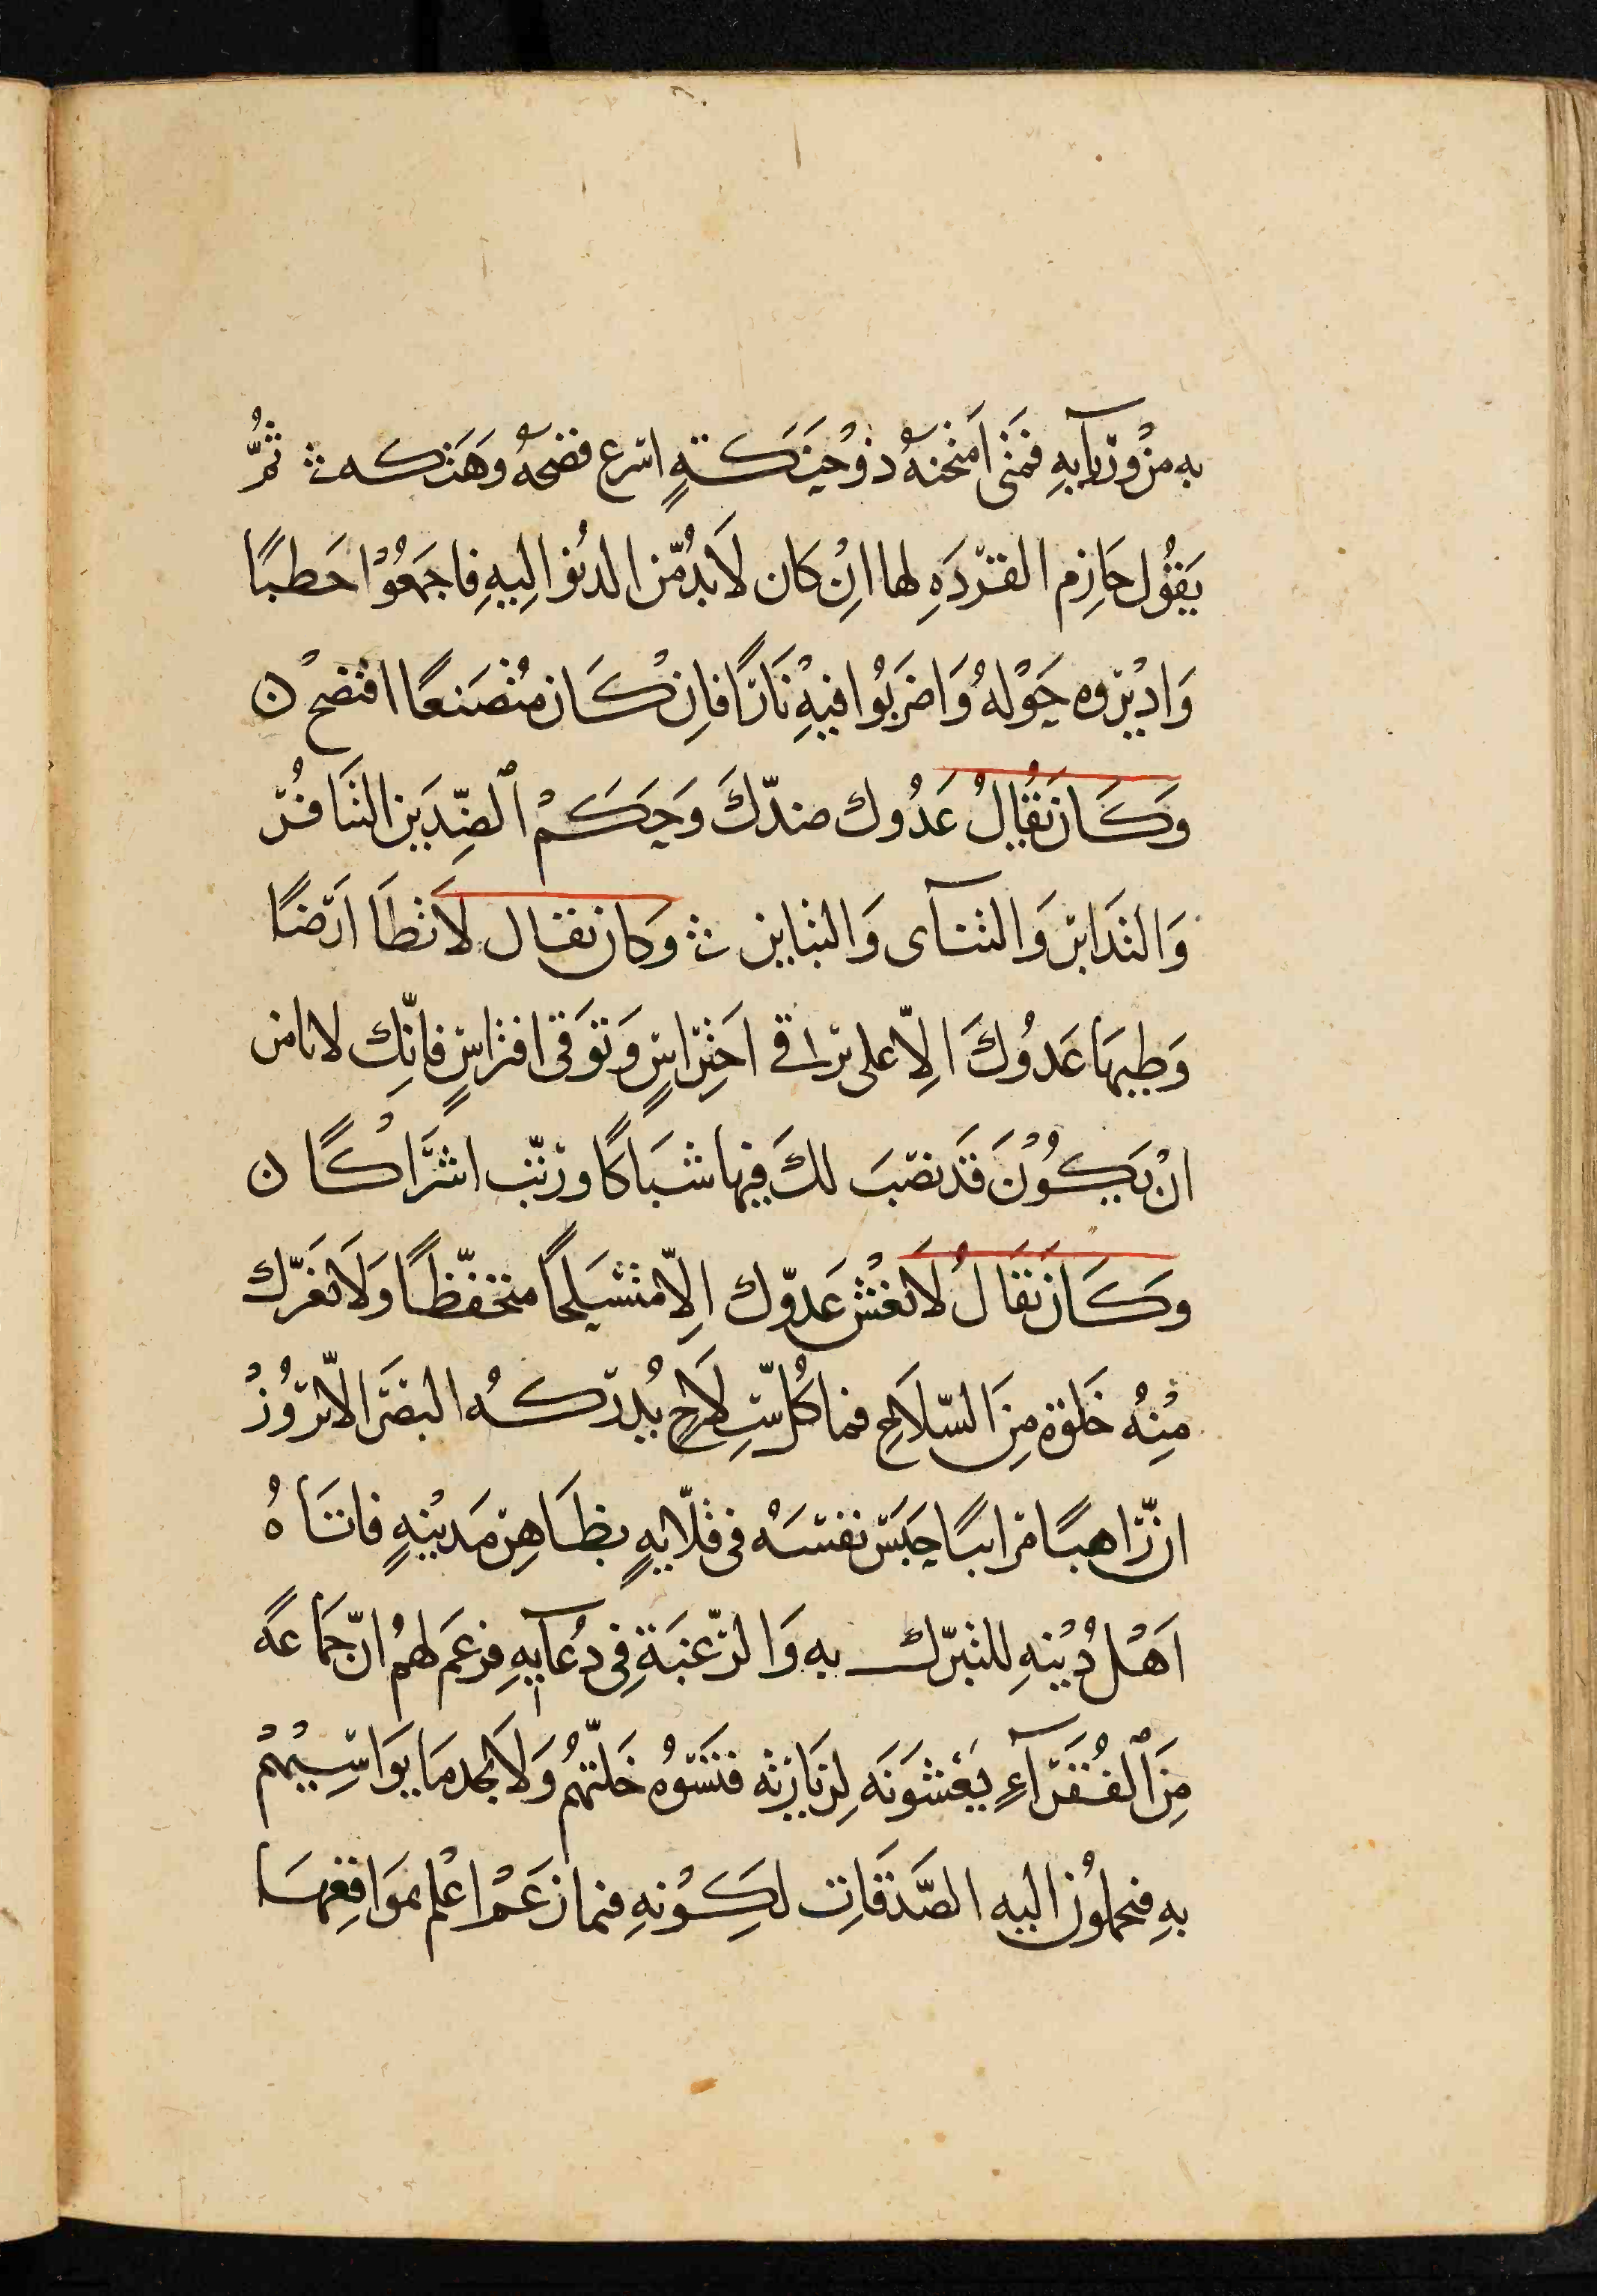 به من ورآیه فمتى امتحنه ذو حنكة اسرع فضحه وهتكه ثم
يقول حازم القردة لها ان كان لا بد من الدنو اليه فاجمعوا حطبًا
واديروه حوله واضربوا فيه نارًا فان كان متصنعًا افتضح ن
وكان يقال عدوك ضدّك وحكم الضدين التنافر
والتدابر والتنآى والتباين وكان يقال لا تطأ ارضًا
وطيها عدوك الّا على احتراس وتوقى افتراس فانّك لا تامن
ان يكون قد نصب لك فيها شباكًا ورتّب اشراكًا ن
وكان يقال لا تغش عدوّك الّا متسلحًا متحفّظًا ولا تغرّك
منه خلوة من السّلاح فما كل سلاح يدركه البصر الا ترون
ان راهبًا مرابيًا حبس نفسه فى قلّاية بظاهر مدينة فاتاه
اهل دينه للتبرّك به والرّغبة فى دعآيه فزعم لهم انّ جماعة
من الفقرآء يغشونه لزيارته فتسوه خلتهم ولا يجد ما يواسيهم
به فحملون اليه الصّدقات لكونه فيما زعم اعلم بمواقعها